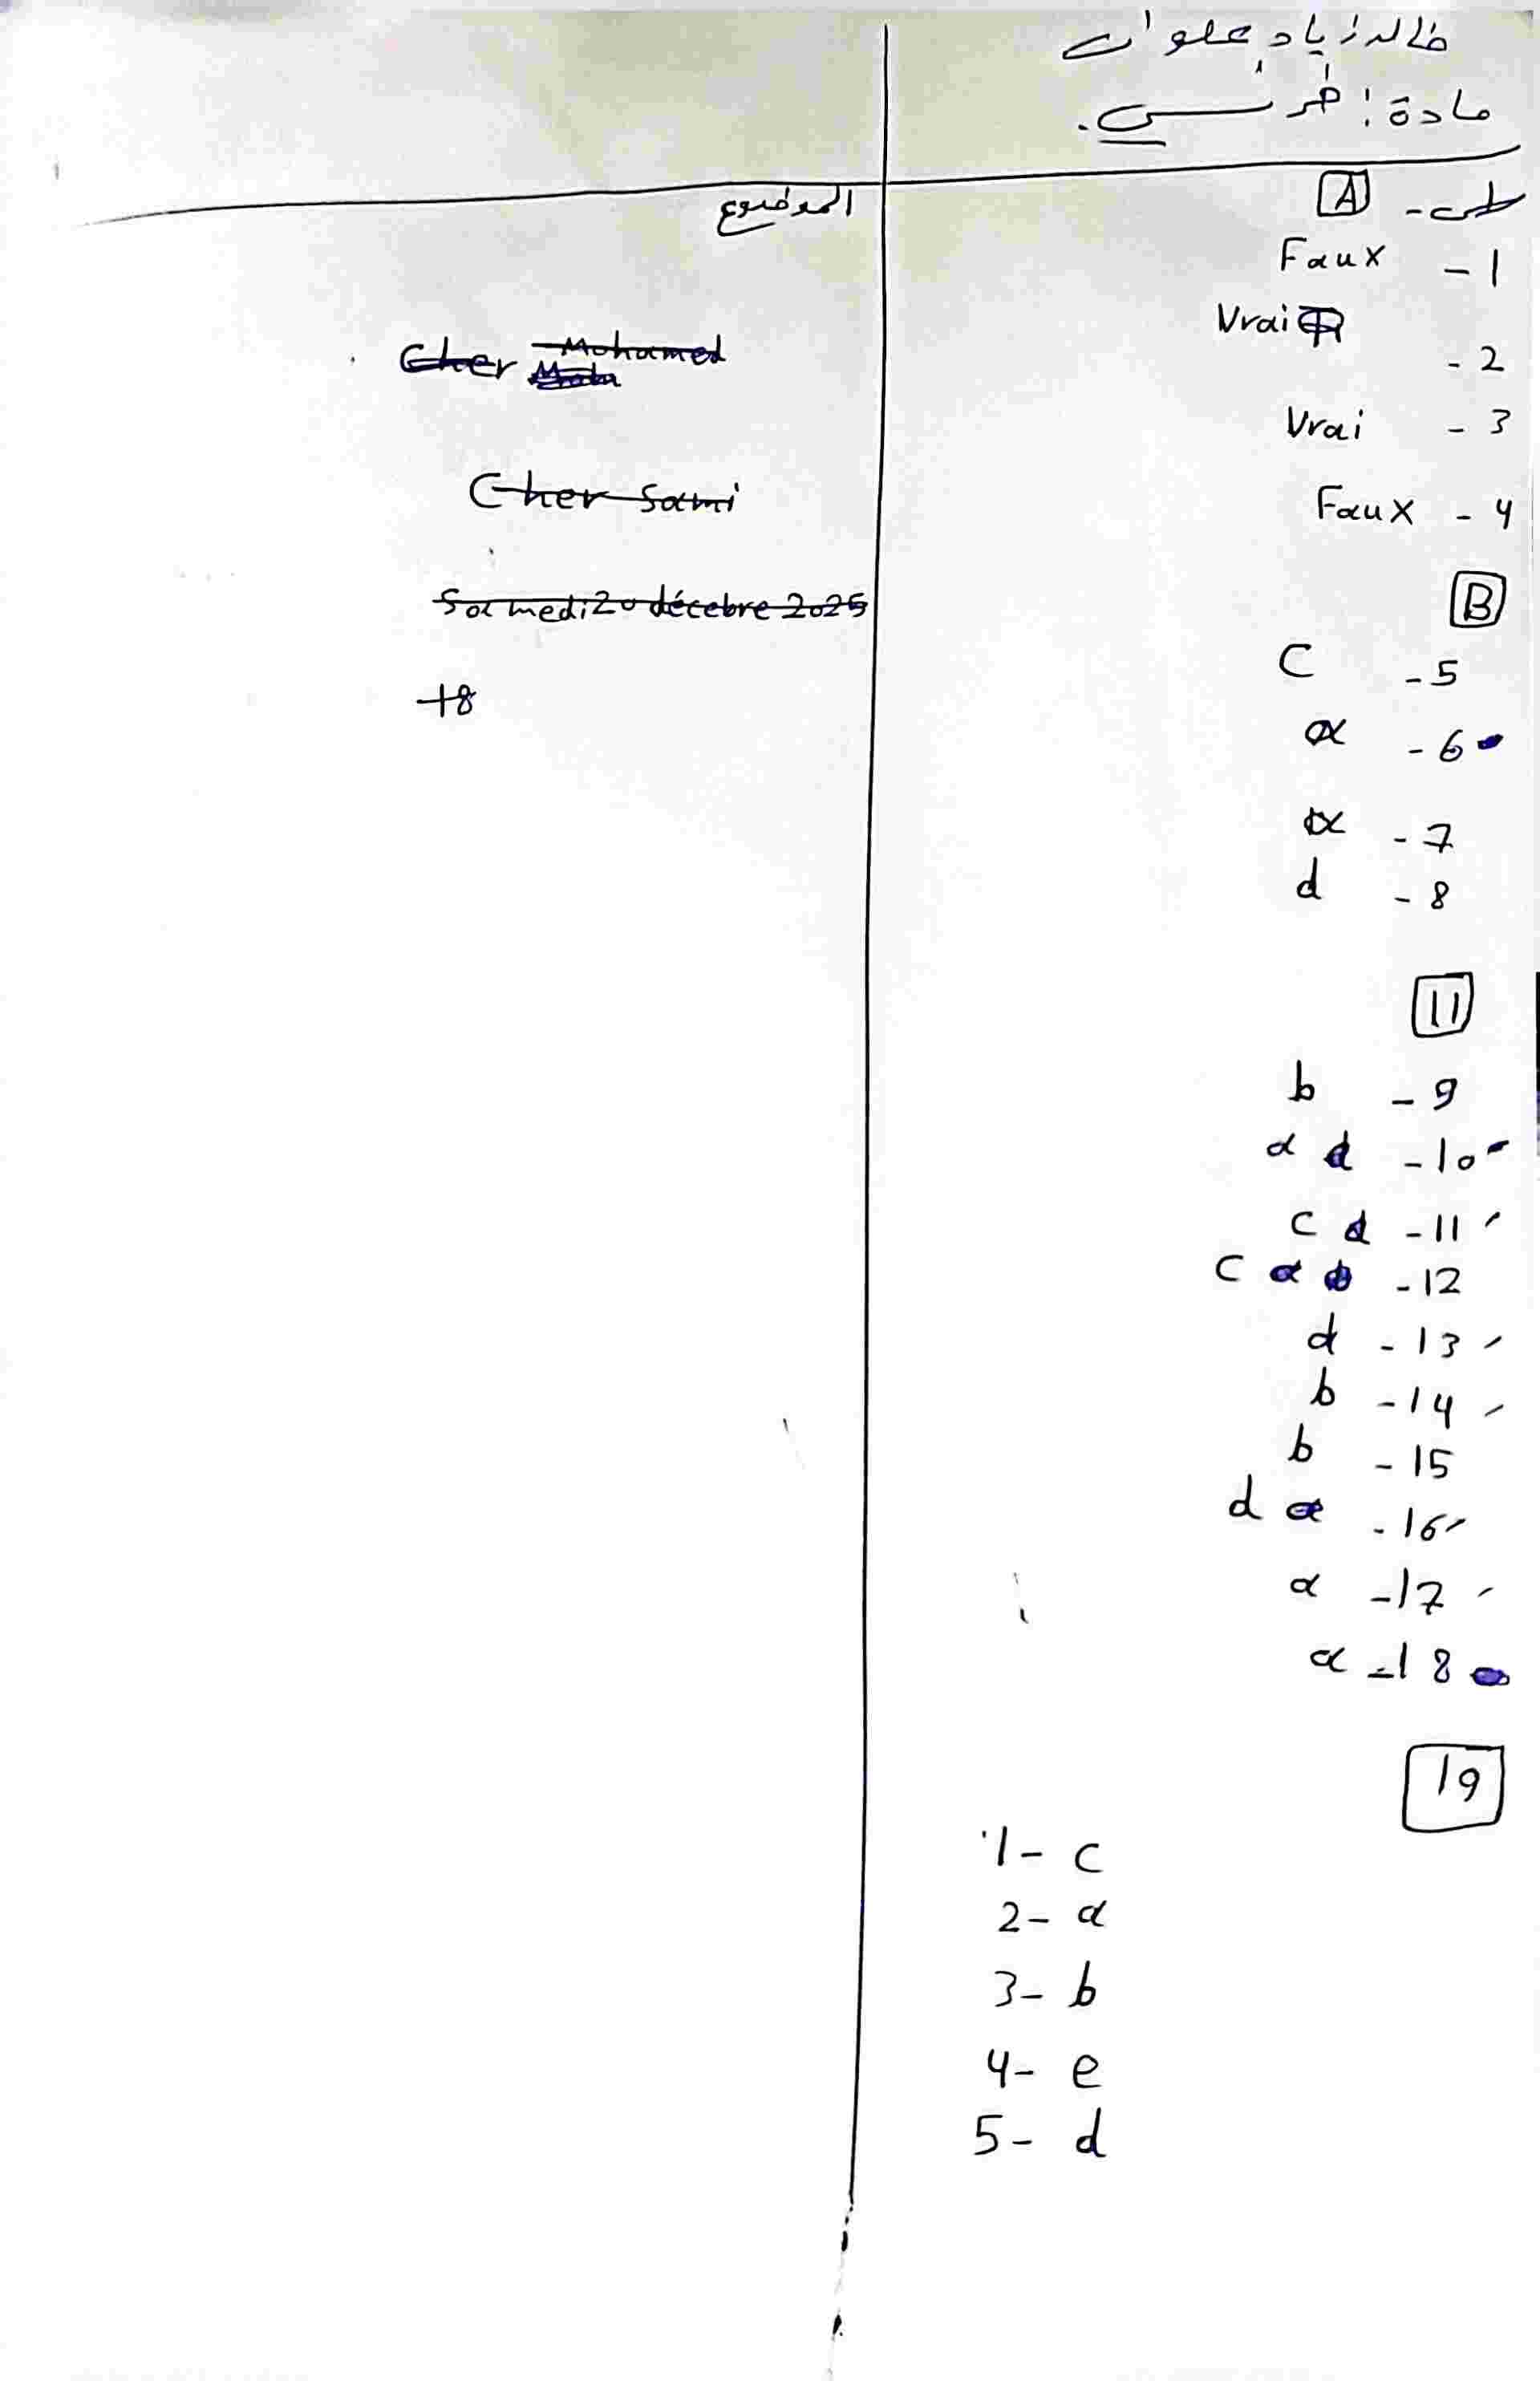 خالد زياد علوان
مادة: فرنسي.
A
1 - Faux
2 - Vrai
3 - Vrai
4 - Faux
B
5 - C
6 - a
7 - a
8 - d
11
9 - b
10 - d a
11 - d c
12 - b a c
13 - d
14 - b
15 - b
16 - a d
17 - a
18 - a
19
1- c
2- a
3- b
4- e
5- d
الموضوع
Cher Mohamed
Cher Sami
Samedi 20 décebre 2025
+8